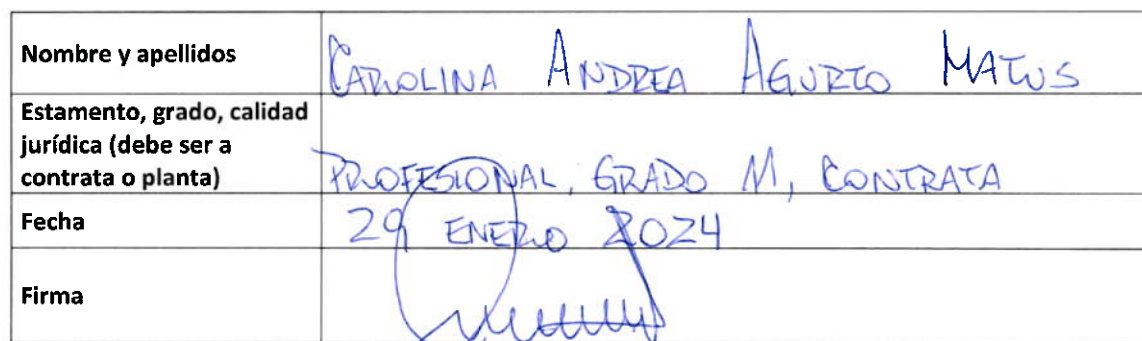 Nombre y apellidos
CAROLINA ANDREA AGURTO MATUS
Estamento, grado, calidad
jurídica (debe ser a
contrata o planta)
PROFESIONAL, GRADO 11, CONTRATA
Fecha
29 ENERO 2024
Firma